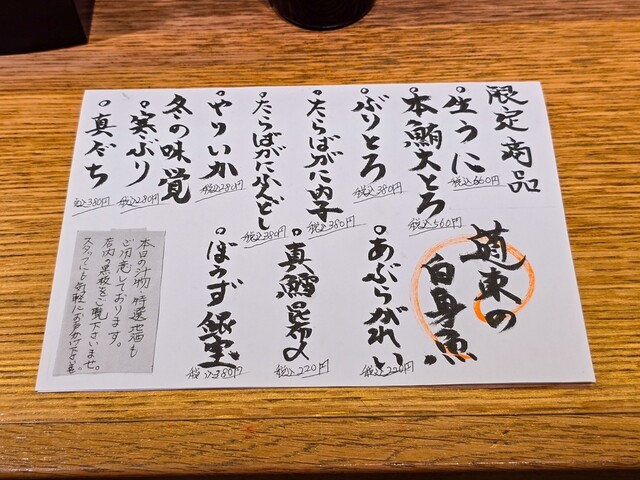 限定商品
・生うに
税込660円
・本鮪大とろ
税込560円
・ぶりとろ
税込380円
・たらばがに内子
税込380円
・たらばがにふんどし
税込380円
・やりいか
税込280円
冬の味覚
・寒ぶり
税込280円
・真だち
税込380円
道東の
白身魚
・あぶらがれい
税込220円
・真鱈昆布〆
税込220円
・ぼうず銀宝
税込380円
本日の汁物・特選地酒も
ご用意しております。
店内の黒板をご覧下さいませ。
スタッフにも気軽にお声かけ下さいませ。